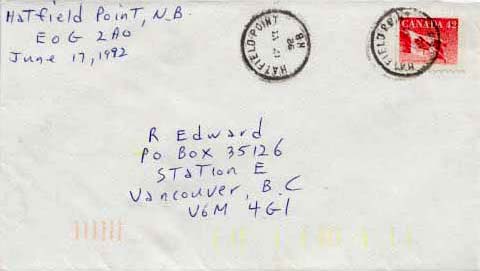 Hatfield Point, N.B.
E0G 2A0
June 17, 1992
HATFIELD-POINT
NB
CANADA 42
HATFIELD-POINT
R Edward
PO BOX 35126
STATION E
Vancouver, B.C
V6M 4G1